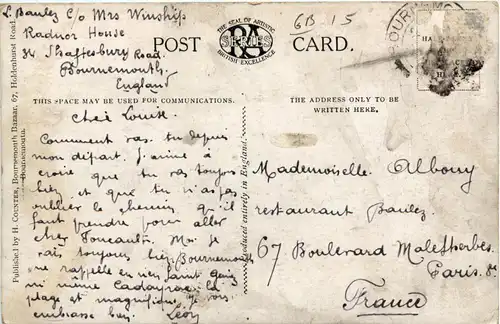 L. Baulez C/o Mrs Winship
Radnor House
34 Shaftesbury Road
Bournemouth
England
POST
THE SEAL OF ARTISTIC
RA
SERIES
BRITISH EXCELLENCE
CARD.
GB 15
BOUR
THIS SPACE MAY BE USED FOR COMMUNICATIONS.
THE ADDRESS ONLY TO BE
WRITTEN HERE.
Cher Louise
Comment vas-tu depuis
mon départ. J'aime à
croire que tu vas toujours
bien et que tu n'as pas
oublier le chemin qu'il
faut prendre pour aller
chez Foucault. Moi je
vais toujours bien Bournemouth
ne rappelle en rien Saint
ni même la
plage est magnifique je vous
embrasse bien Léon
Mademoiselle Albouy
restaurant Baulez
67 Boulevard Malesherbes
Paris 8e
France
Published by H. COUNTER, Bournemouth Bazaar, 67, Holdenhurst Road,
Bournemouth.
Produced entirely in England.